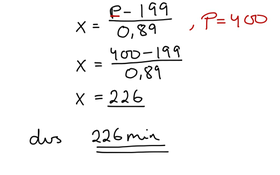 x = P - 199 / 0,89 , P = 400
x = 400 - 199 / 0,89
x = 226
dvs 226 min